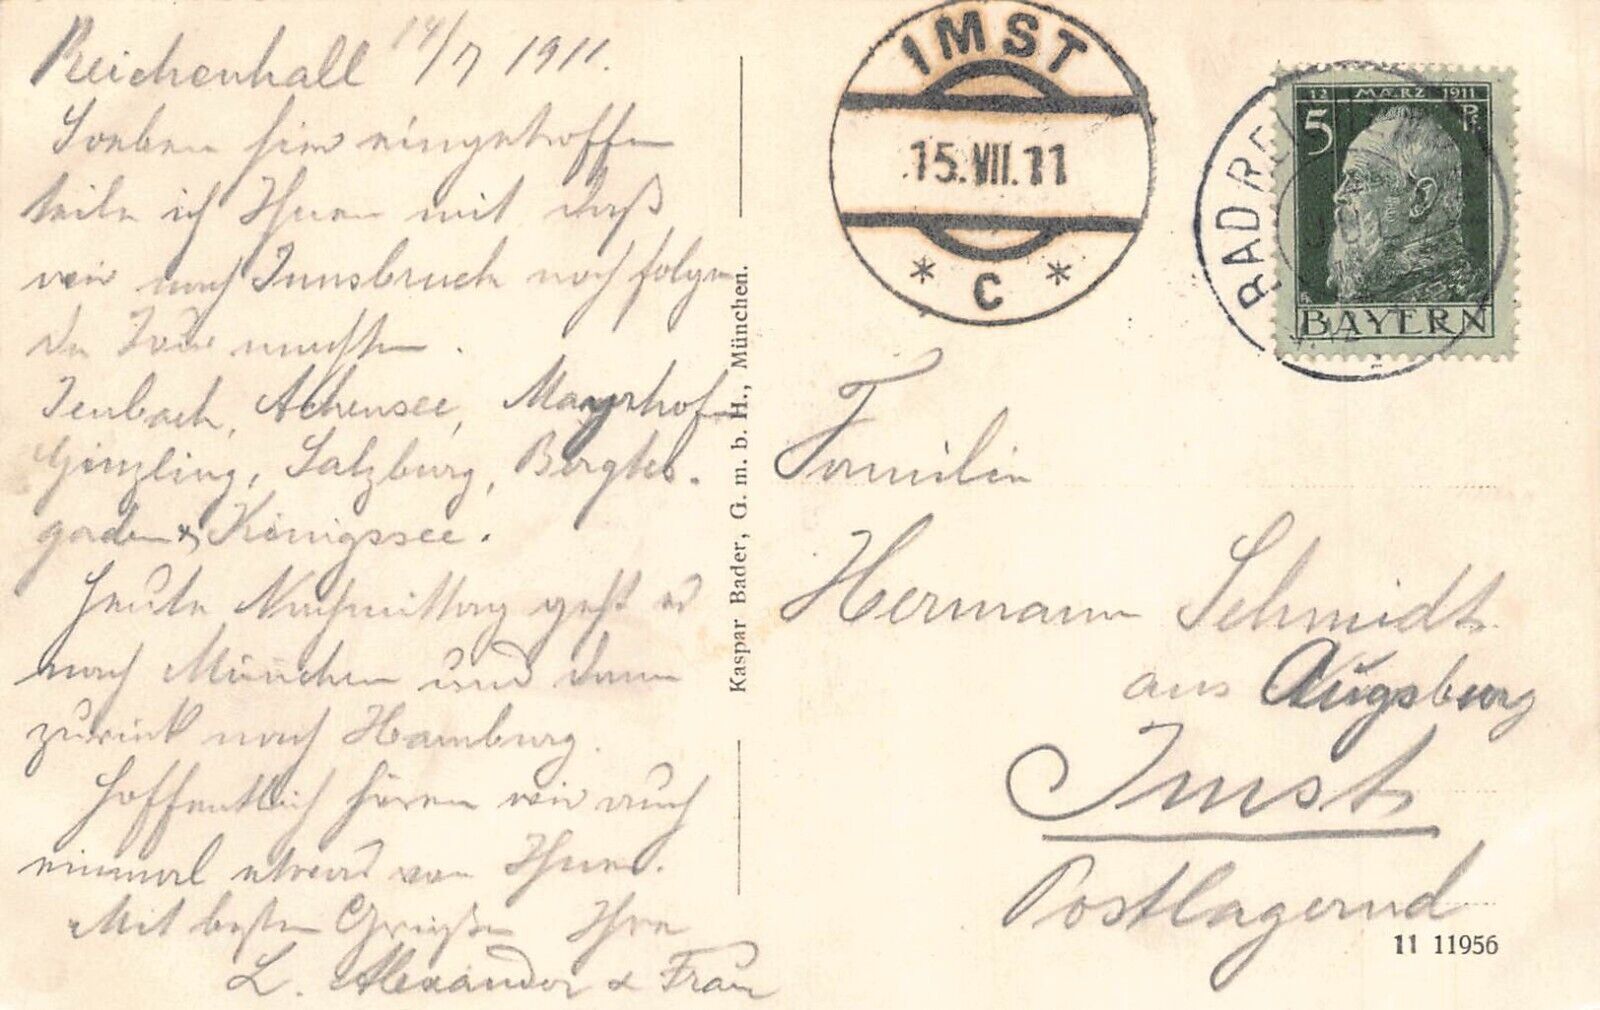 Reichenhall 14/7 1911.
Soeben hier eingetroffen
teile ich Ihnen mit daß
wir nach Innsbruck noch folgen
de Tour machten.
Jenbach, Achensee, Mayrhofen
Ginzling, Salzburg, Berghtes-
gaden & Königssee.
Heute Nachmittag geht es
nach München und dann
zurück nach Hamburg.
Hoffentlich hören wir auch
einmal etwas von Ihnen.
Mit besten Grüßen Ihre
L. Alexander & Frau
Kaspar Bader, G. m. b. H., München.
IMST
15.VII.11
* C *
BAD RE
12 MÄRZ 1911
5 Pf
BAYERN
Familie
Hermann Schmidt
aus Augsburg
Imst
Postlagernd
11 11956